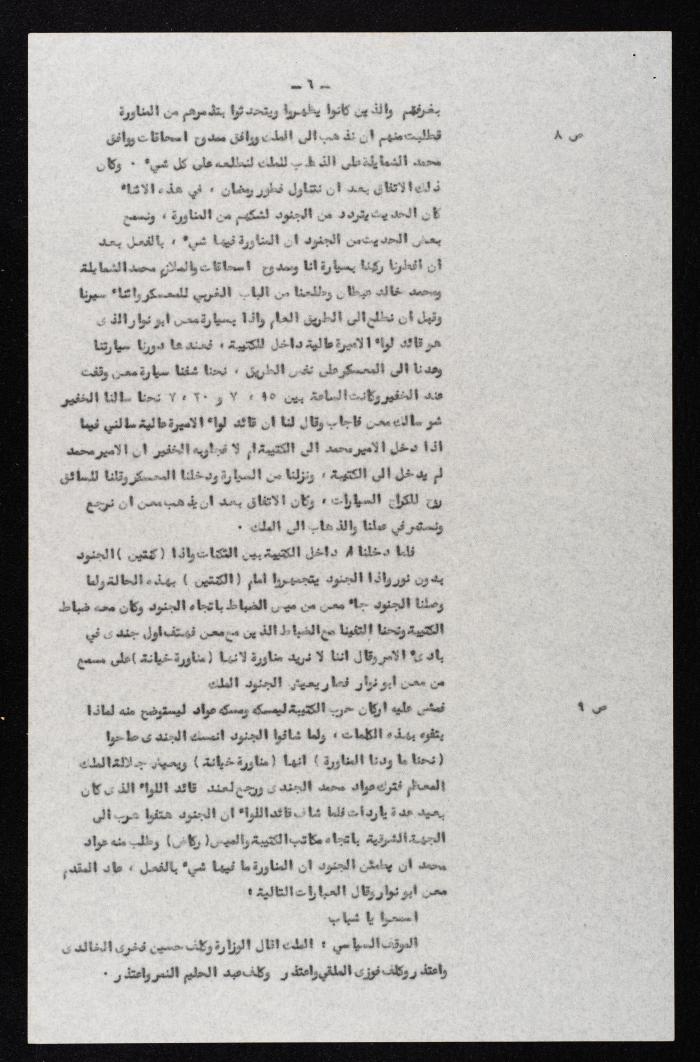 ـ ٦ ـ
بغرفهم والذين كانوا يظهروا ويتحدثوا بتذمرهم من المناورة
ص ٨
فطلبت منهم ان نذهب الى الملك ووافق ممدوح اسحاقات ووافق
محمد الشمايلة على الذهاب للملك لنطلعه على كل شيء ٠ وكان
ذلك الاتفاق بعد ان نتناول فطور رمضان ، في هذه الاثناء
كان الحديث يتردد من الجنود لشكهم من المناورة ، ونسمع
بعض الحديث من الجنود ان المناورة فيها شيء ، بالفعل بعد
ان افطرنا ركبنا بسيارة انا وممدوح اسحاقات والملازم محمد الشمايلة
ومحمد خالد وطلعنا من الباب الغربي للمعسكر واثناء سيرنا
وقبل ان نطلع الى الطريق العام واذا بسيارة معن ابو نوار الذى
هو قائد لواء الاميرة عالية داخل للكتيبة ، فعندها دورنا سيارتنا
وعدنا الى المعسكر على نفس الطريق ، نحنا شفنا سيارة معن وقفت
عند الخفير وكانت الساعة بين ٩٥ ، ٧ و ٢٠ ، ٧ نحنا سالنا الخفير
شو سالك معن فاجاب وقال لنا ان قائد لواء الاميرة عالية سالني فيما
اذا دخل الامير محمد الى الكتيبة ام لا فجاوبه الخفير ان الامير محمد
لم يدخل الى الكتيبة ، ونزلنا من السيارة ودخلنا المعسكر وقلنا للسائق
روح للكراج السيارات ، وكان الاتفاق بعد ان يذهب معن ان نرجع
ونستمر في عملنا والذهاب الى الملك ٠
فلما دخلنا داخل الكتيبة بين الثكنات واذا ( كنتين ) الجنود
بدون نور واذا الجنود يتجمهروا امام ( الكنتين ) بهذه الحالة ولما
وصلنا الجنود جاء معن من ميس الضباط باتجاه الجنود وكان معه ضباط
الكتيبة ونحنا التقينا مع الضباط الذين مع معن فهتف اول جندى في
بادىء الامر وقال اننا لا نريد مناورة لانها ( مناورة خيانة ) على مسمع
من معن ابو نوار فصار يعيش الجنود الملك
ص ٩
فمشى عليه اركان حرب الكتيبة ليمسكه ومسكه عواد ليستوضح منه لماذا
يتفوه بهذه الكلمات ، ولما شافوا الجنود انمسك الجندى صاحوا
( نحنا ما ودنا المناورة ) انها ( مناورة خيانة ) ويعيش جلالة الملك
المعظم فترك عواد محمد الجندى ورجع لعند قائد اللواء الذى كان
بعيد عدة ياردات فلما شاف قائد اللواء ان الجنود هتفوا هرب الى
الجهة الشرقية باتجاه مكاتب الكتيبة والميس ( ركاض ) وطلب منه عواد
محمد ان يطمئن الجنود ان المناورة ما فيها شيء بالفعل ، عاد المقدم
معن ابو نوار وقال العبارات التالية :
اسمعوا يا شباب
الموقف السياسي : الملك اقال الوزارة وكلف حسين فخرى الخالدى
واعتذر وكلف فوزى الملقي واعتذر وكلف عبد الحليم النمر واعتذر ٠